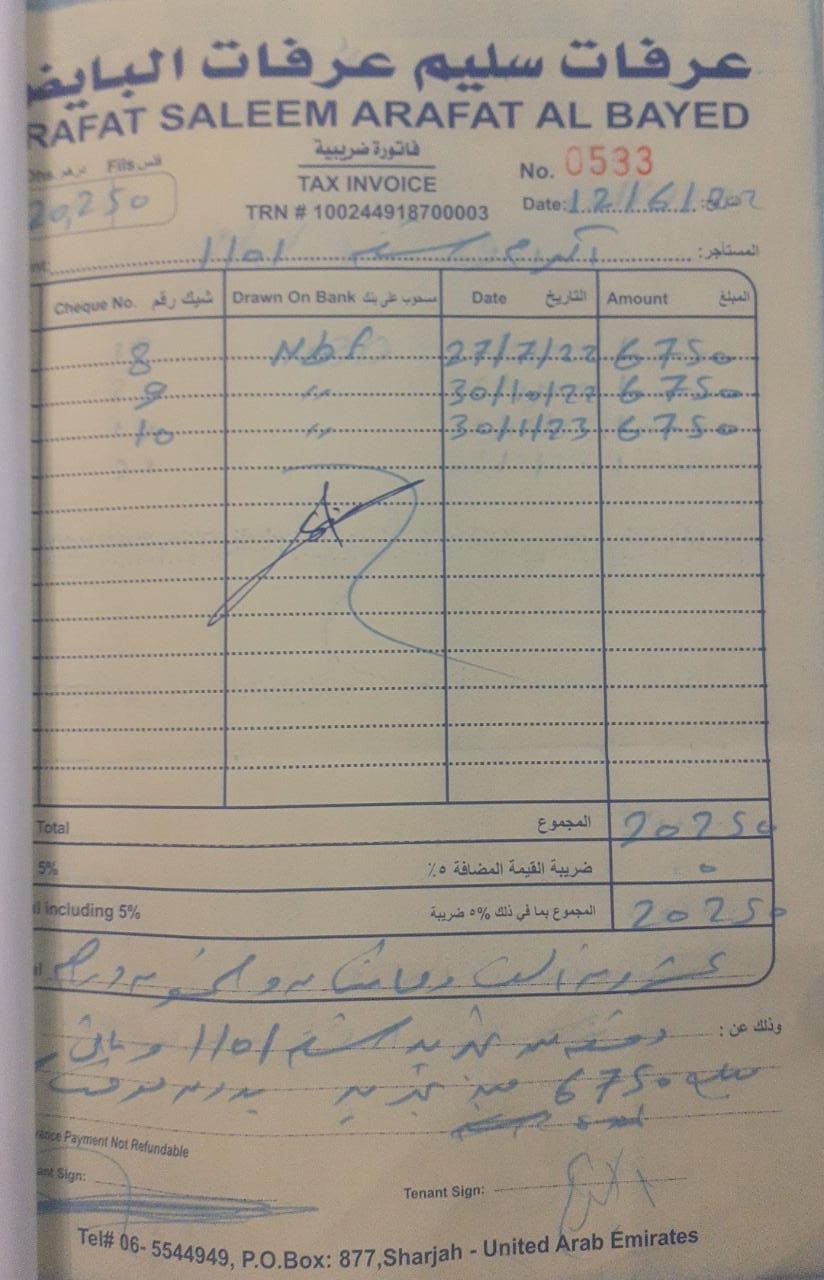 عرفات سليم عرفات البايض
RAFAT SALEEM ARAFAT AL BAYED
درهم Fils فلس
فاتورة ضريبية
No. 0533
20,250
TAX INVOICE
Date: 12/6/ التاريخ:
TRN # 100244918700003
المستأجر: أكرم 1101
Cheque No. شيك رقم Drawn On Bank مسحوب على بنك Date التاريخ Amount المبلغ
8 Nbf 27/7/22 6750
9 〃 30/10/22 6750
10 〃 30/1/23 6750
Total المجموع 20250
5% ضريبة القيمة المضافة ٥٪ 0
including 5% المجموع بما في ذلك 5% ضريبة 20250
عشرون ألف ومائتان وخمسون درهم
وذلك عن: 1101
6750
ance Payment Not Refundable
ant Sign:
Tenant Sign:
Tel# 06- 5544949, P.O.Box: 877,Sharjah - United Arab Emirates